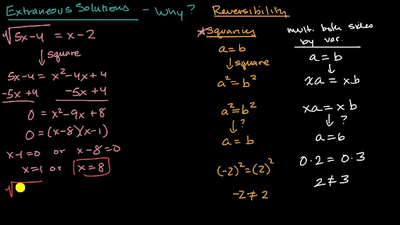 Extraneous Solutions - Why? Reversibility
√5x-4 = x-2
↓ square
5x-4 = x²-4x+4
-5x+4   -5x+4
0 = x²-9x+8
0 = (x-8)(x-1)
x-1=0 or x-8=0
x=1 or x=8
√
*Squaring
a=b
↓ square
a²=b²
a²=b²
↓?
a=b
(-2)²=(2)²
-2≠2
mult. both sides
by var.
a=b
↓
xa=xb
xa=xb
↓?
a=b
0·2=0·3
2≠3